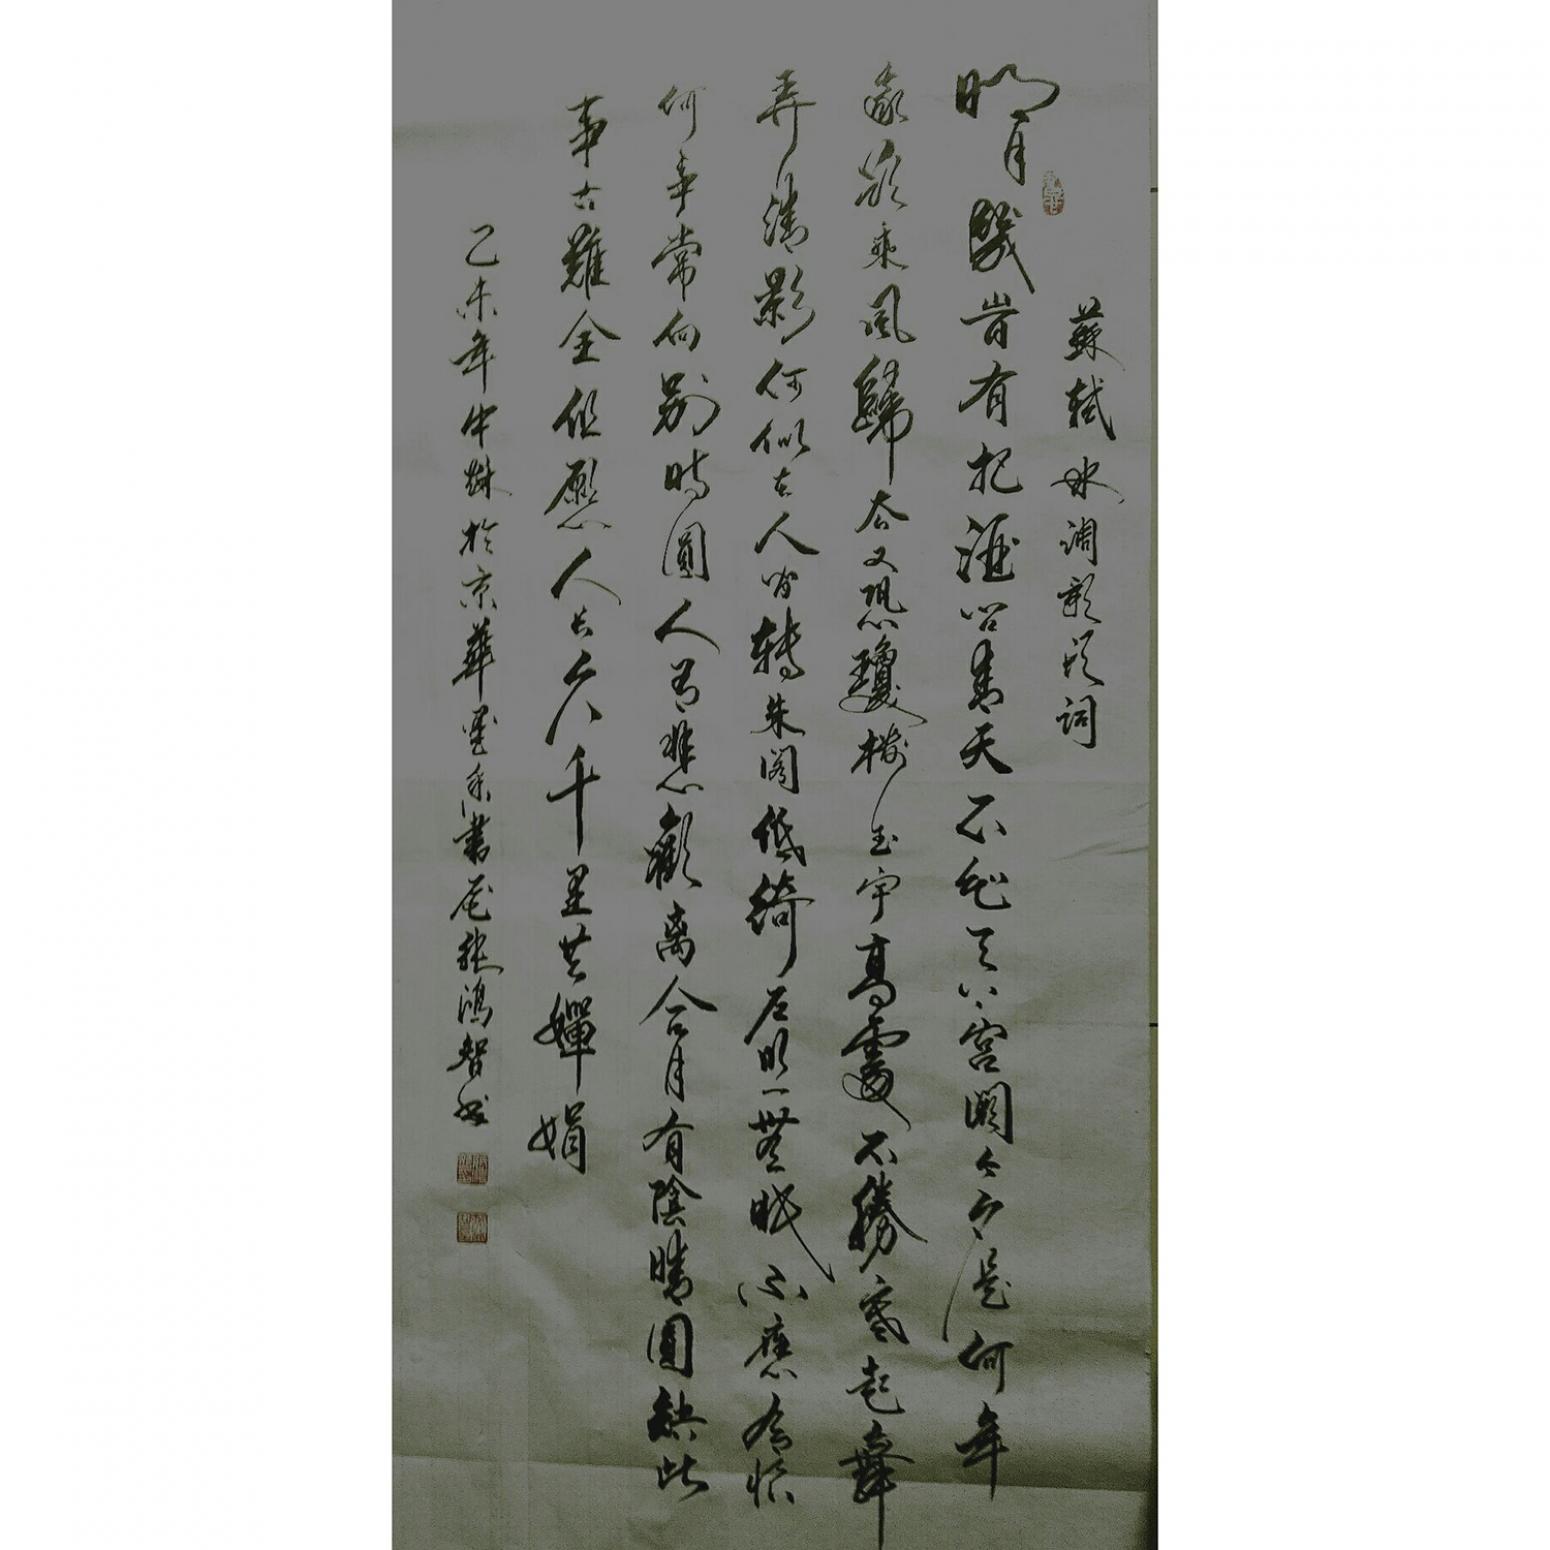 蘇軾水調歌頭詞
明月幾時有把酒問青天不知天上宮闕今夕是何年
我欲乘風歸去又恐瓊樓玉宇高處不勝寒起舞
弄清影何似在人間轉朱閣低綺戶照無眠不應有恨
何事常向別時圓人有悲歡离合月有陰晴圓缺此
事古難全但願人長久千里共嬋娟
乙未年中秋於京華墨香書屋張鴻智書